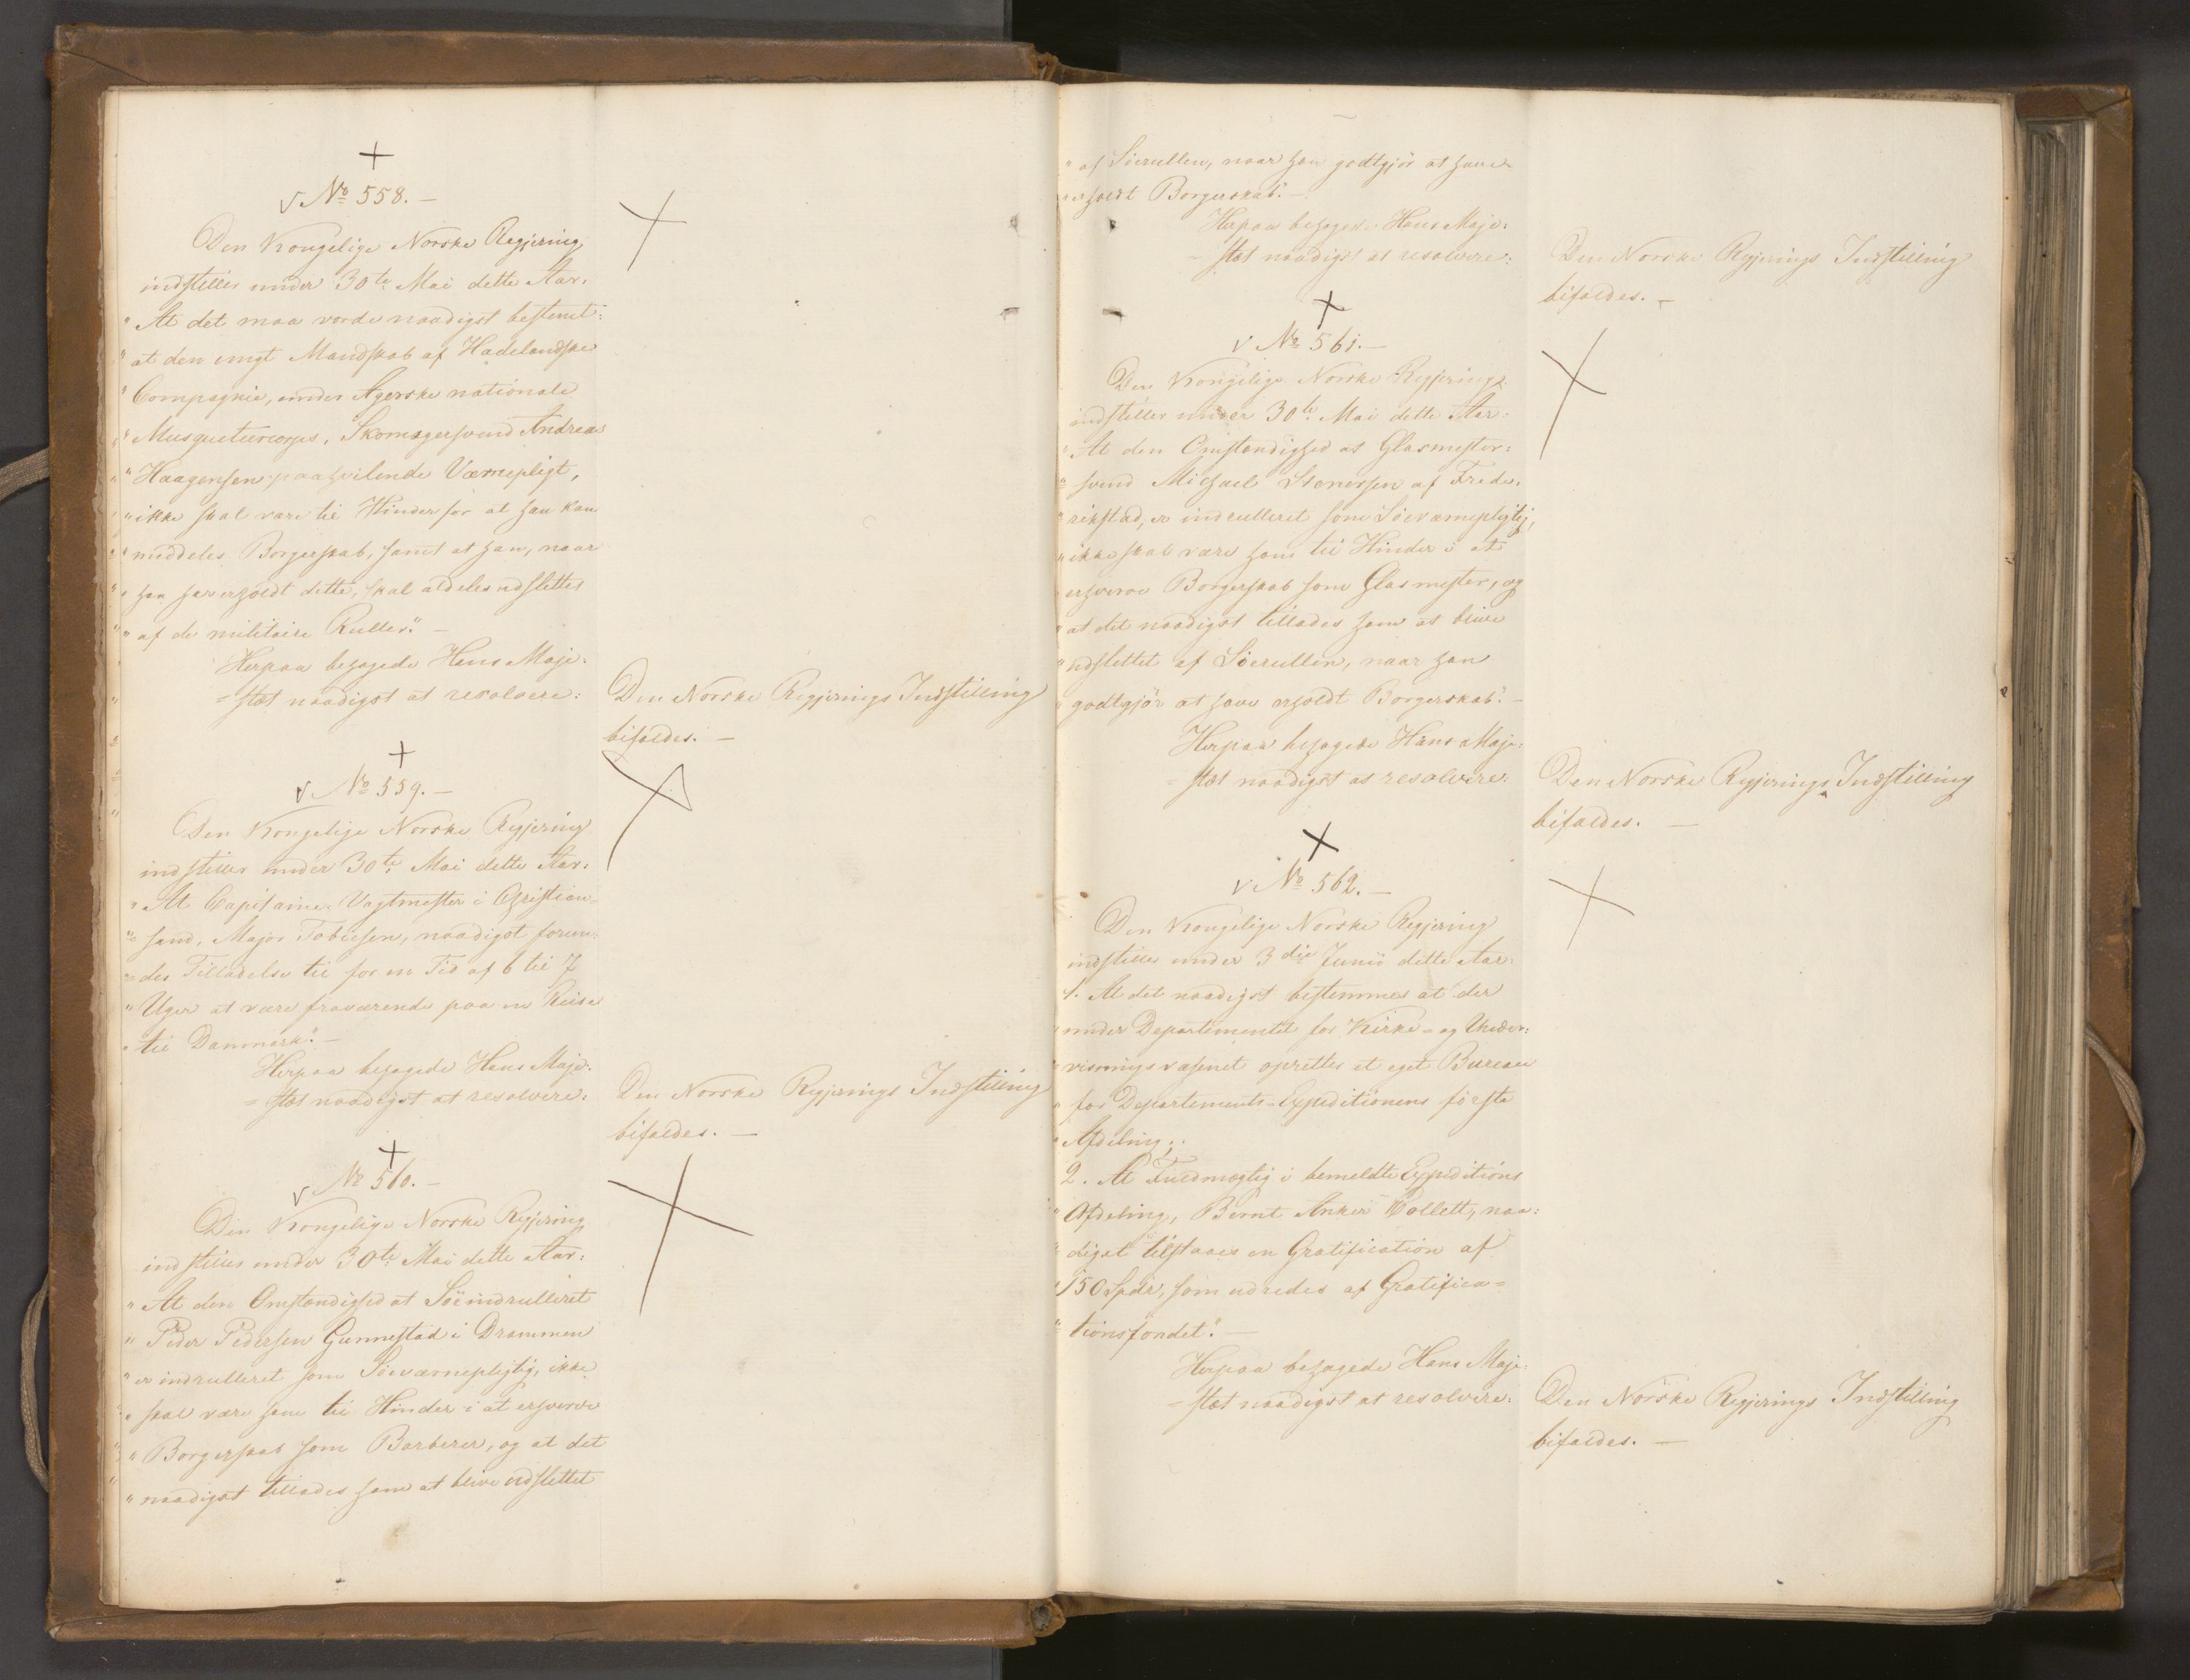 √ No 558. —
Den Kongelige Norske Regjering
indstiller under 30te Mai dette Aar:
" At det maa vorde naadigst bestemt:
" at den ungt Mandskab af Hadelandske
" Compagnie, under Agerske nationale
" Musqueteercorps, Skomagersvend Andreas
" Haagensen paahvilende Værnepligt,
" ikke skal være til Hinder for at han kan
" meddeles Borgerskab, samt at han, naar
" han har erholdt dette, skal aldeles udslettes
" af de militaire Ruller." —
Herpaa behagede Hans Maje-
= stæt naadigst at resolvere:
Den Norske Regjerings Indstilling
bifaldes. —
√ No 559. —
Den Kongelige Norske Regjering
indstiller under 30te Mai dette Aar:
" At Capitaine-Vagtmester i Christian-
" sand, Major Tobiesen, naadigst forun-
" des Tilladelse til for en Tid af 6 til 7
" Uger at være fraværende paa en Reise
" til Danmark." —
Herpaa behagede Hans Maje-
= stæt naadigst at resolvere:
Den Norske Regjerings Indstilling
bifaldes. —
√ No 560. —
Den Kongelige Norske Regjering
indstiller under 30te Mai dette Aar:
" At den Omstændighed at Söeindrulleret
" Peder Pedersen Gunnestad i Drammen
" er indrulleret som Söeværnepligtig, ikke
" skal være ham til Hinder i at erhverve
" Borgerskab som Barberer, og at det
" naadigst tillades ham at blive udslettet
" af Söerullen, naar han godtgjör at have
" erholdt Borgerskab." —
Herpaa behagede Hans Maje-
= stæt naadigst at resolvere:
Den Norske Regjerings Indstilling
bifaldes. —
√ No 561. —
Den Kongelige Norske Regjering
indstiller under 30te Mai dette Aar:
" At den Omstændighed at Glasmester-
" svend Michael Stenersen af Frede-
" rikstad, er indrulleret som Söeværnepligtig,
" ikke skal være ham til Hinder i at
" erhverve Borgerskab som Glasmester, og
" at det naadigst tillades ham at blive
" udslettet af Söerullen, naar han
" godtgjör at have erholdt Borgerskab." —
Herpaa behagede Hans Maje-
= stæt naadigst at resolvere:
Den Norske Regjerings Indstilling
bifaldes. —
√ No 562. —
Den Kongelige Norske Regjering
indstiller under 3die Junii dette Aar:
1. At det naadigst bestemmes at der
" under Departementet for Kirke- og Under-
" viisningsvæsenet oprettes et eget Bureau
" for Departements-Expeditionens förste
" Afdeling;
2. At Fuldmægtig i bemeldte Expeditions
" Afdeling, Bernt Anker Collett, naa-
" digst tilstaaes en Gratification af
" 150 Spdr, som udredes af Gratifica-
" tionsfondet." —
Herpaa behagede Hans Maje-
= stæt naadigst at resolvere:
Den Norske Regjerings Indstilling
bifaldes. —